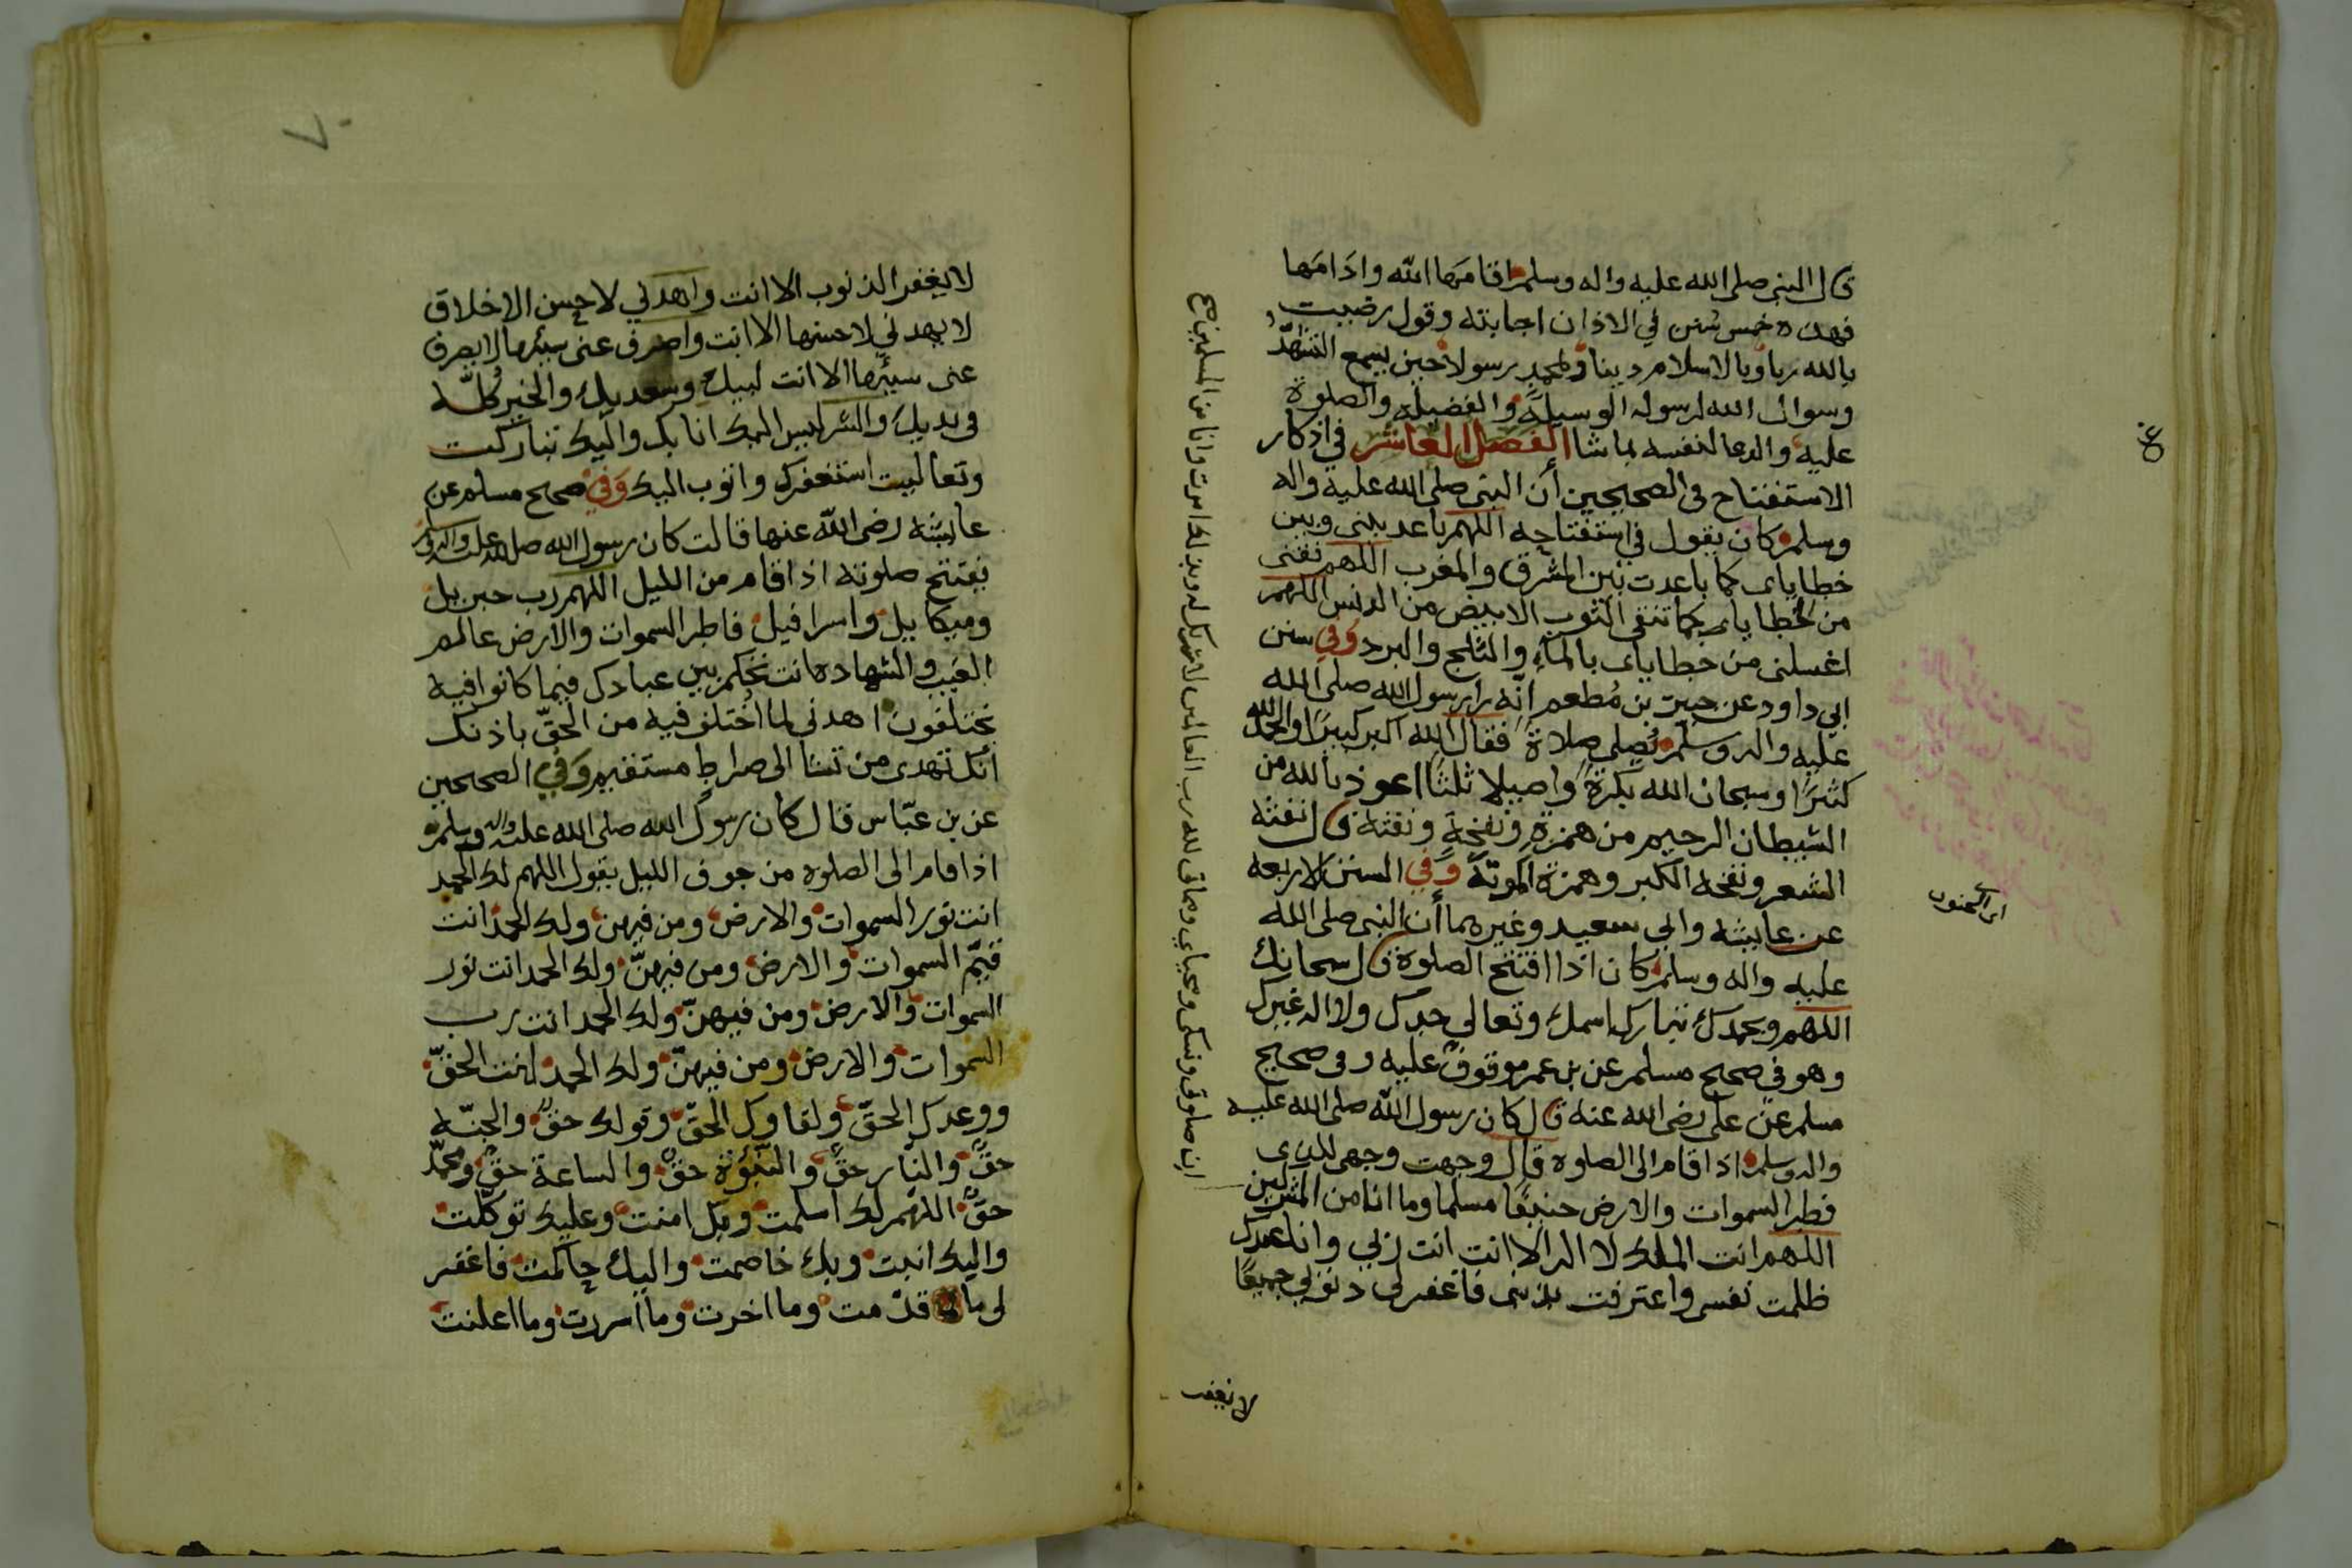 قال النبي صلى الله عليه واله وسلم اقامها الله وادامها
فهذه خمس سنن في الاذان اجابته وقول رضيت
بالله ربا وبالاسلام دينا وبمحمد رسولا حين يسمع التشهد
وسوال الله لرسوله الوسيلة والفضيله والصلوة
عليه والدعا لنفسه بما شا الفصل العاشر في اذكار
الاستفتاح في الصحيحين أن النبي صلى الله عليه واله
وسلم كان يقول في استفتاحه اللهم باعد بيني وبين
خطاياى كما باعدت بين المشرق والمغرب اللهم نقنى
من خطاياى كما تنقى الثوب الابيض من الدنس اللهم
اغسلنى من خطاياى بالماء والثلج والبرد وفي سنن
ابي داود عن جبير بن مُطعم انّه را رسول الله صلى الله
عليه واله وسلم يُصلي صلاةً فقال الله اكبر كبيرًا والحمد لله
كثيرًا وسبحان الله بكرةً واصيلا ثلثًا اعوذ بالله من
الشيطان الرجيم من همزةِ ونفخهِ ونفثه قال نفثه
الشعر ونفخه الكبر وهمزه الموتة وفي السنن الاربعه
عن عايشه وابى سعيد وغيرهما أن النبي صلى الله
عليه واله وسلم كان اذا افتتح الصلوة قال سبحانك
اللهم وبحمدك تبارك اسمك وتعالى جدك ولا اله غيرك
وهو في صحيح مسلم عن بن عمر موقوف عليه وفى صحيح
مسلم عن على رضى الله عنه قال كان رسول الله صلى الله عليه
واله وسلم اذا قام الى الصلوه قال وجهت وجهى للذى
فطر السموات والارض حنيفًا مسلما وما انا من المشركين
اللهم انت الملك لا اله الا انت انت ربي وانا عبدك
ظلمت نفسى واعترفت بذنبى فاغفر لى ذنوبي جميعًا
لا يغفر
ان صلوتى ونسكى ومحياي ومماتى لله رب العالمين لا شريك له وبذلك امرت وانا من المسلمين صح
اى الجنون
٧٠
لا يغفر الذنوب الا انت واهدني لاحسن الاخلاق
لا يهدني لاحسنها الا انت واصرف عنى سيئها لا يصرف
عنى سيئها الا انت لبيك وسعديك والخير كُلّه
فى يديك والشر ليس اليك انا بك واليك تباركت
وتعاليت استغفرك واتوب اليك وَفي صحيح مسلم عن
عايشه رضى الله عنها قالت كان رسول الله صلى الله عليه واله وسلم
يفتتح صلوته اذا قام من الليل اللهم رب جبريل
وميكاييل واسرافيل فاطر السموات والارض عالم
الغيب والشهاده انت تحكم بين عبادك فيما كانوا فيه
يختلفون اهدني لما اختلف فيه من الحقّ باذنك
انك تهدى من تشا الى صراط مستقيم وَفي الصحيحين
عن بن عبّاس قال كان رسول الله صلى الله عليه واله وسلم
اذا قام الى الصلوه من جوف الليل يقول اللهم لك الحمد
انت نور السموات والارض ومن فيهن ولك الحمد انت
قيّم السموات والارض ومن فيهنّ ولك الحمد انت نور
السموات والارض ومن فيهنّ ولك الحمد انت رب
السموات والارض ومن فيهنّ ولك الحمد انت الحقّ
ووعدك الحقّ ولقاوك الحقّ وقولك حقٌ والجنّه
حقٌ والنّار حقٌ والنّبُوّة حقٌ والساعة حقٌ ومحمّد
حقٌ اللهم لك اسلمت وبك امنت وعليك توكّلت
واليك انبت وبك خاصمت واليك حاكمت فاغفر
لى ما قدّمت وما اخرت وما اسررت وما اعلنت